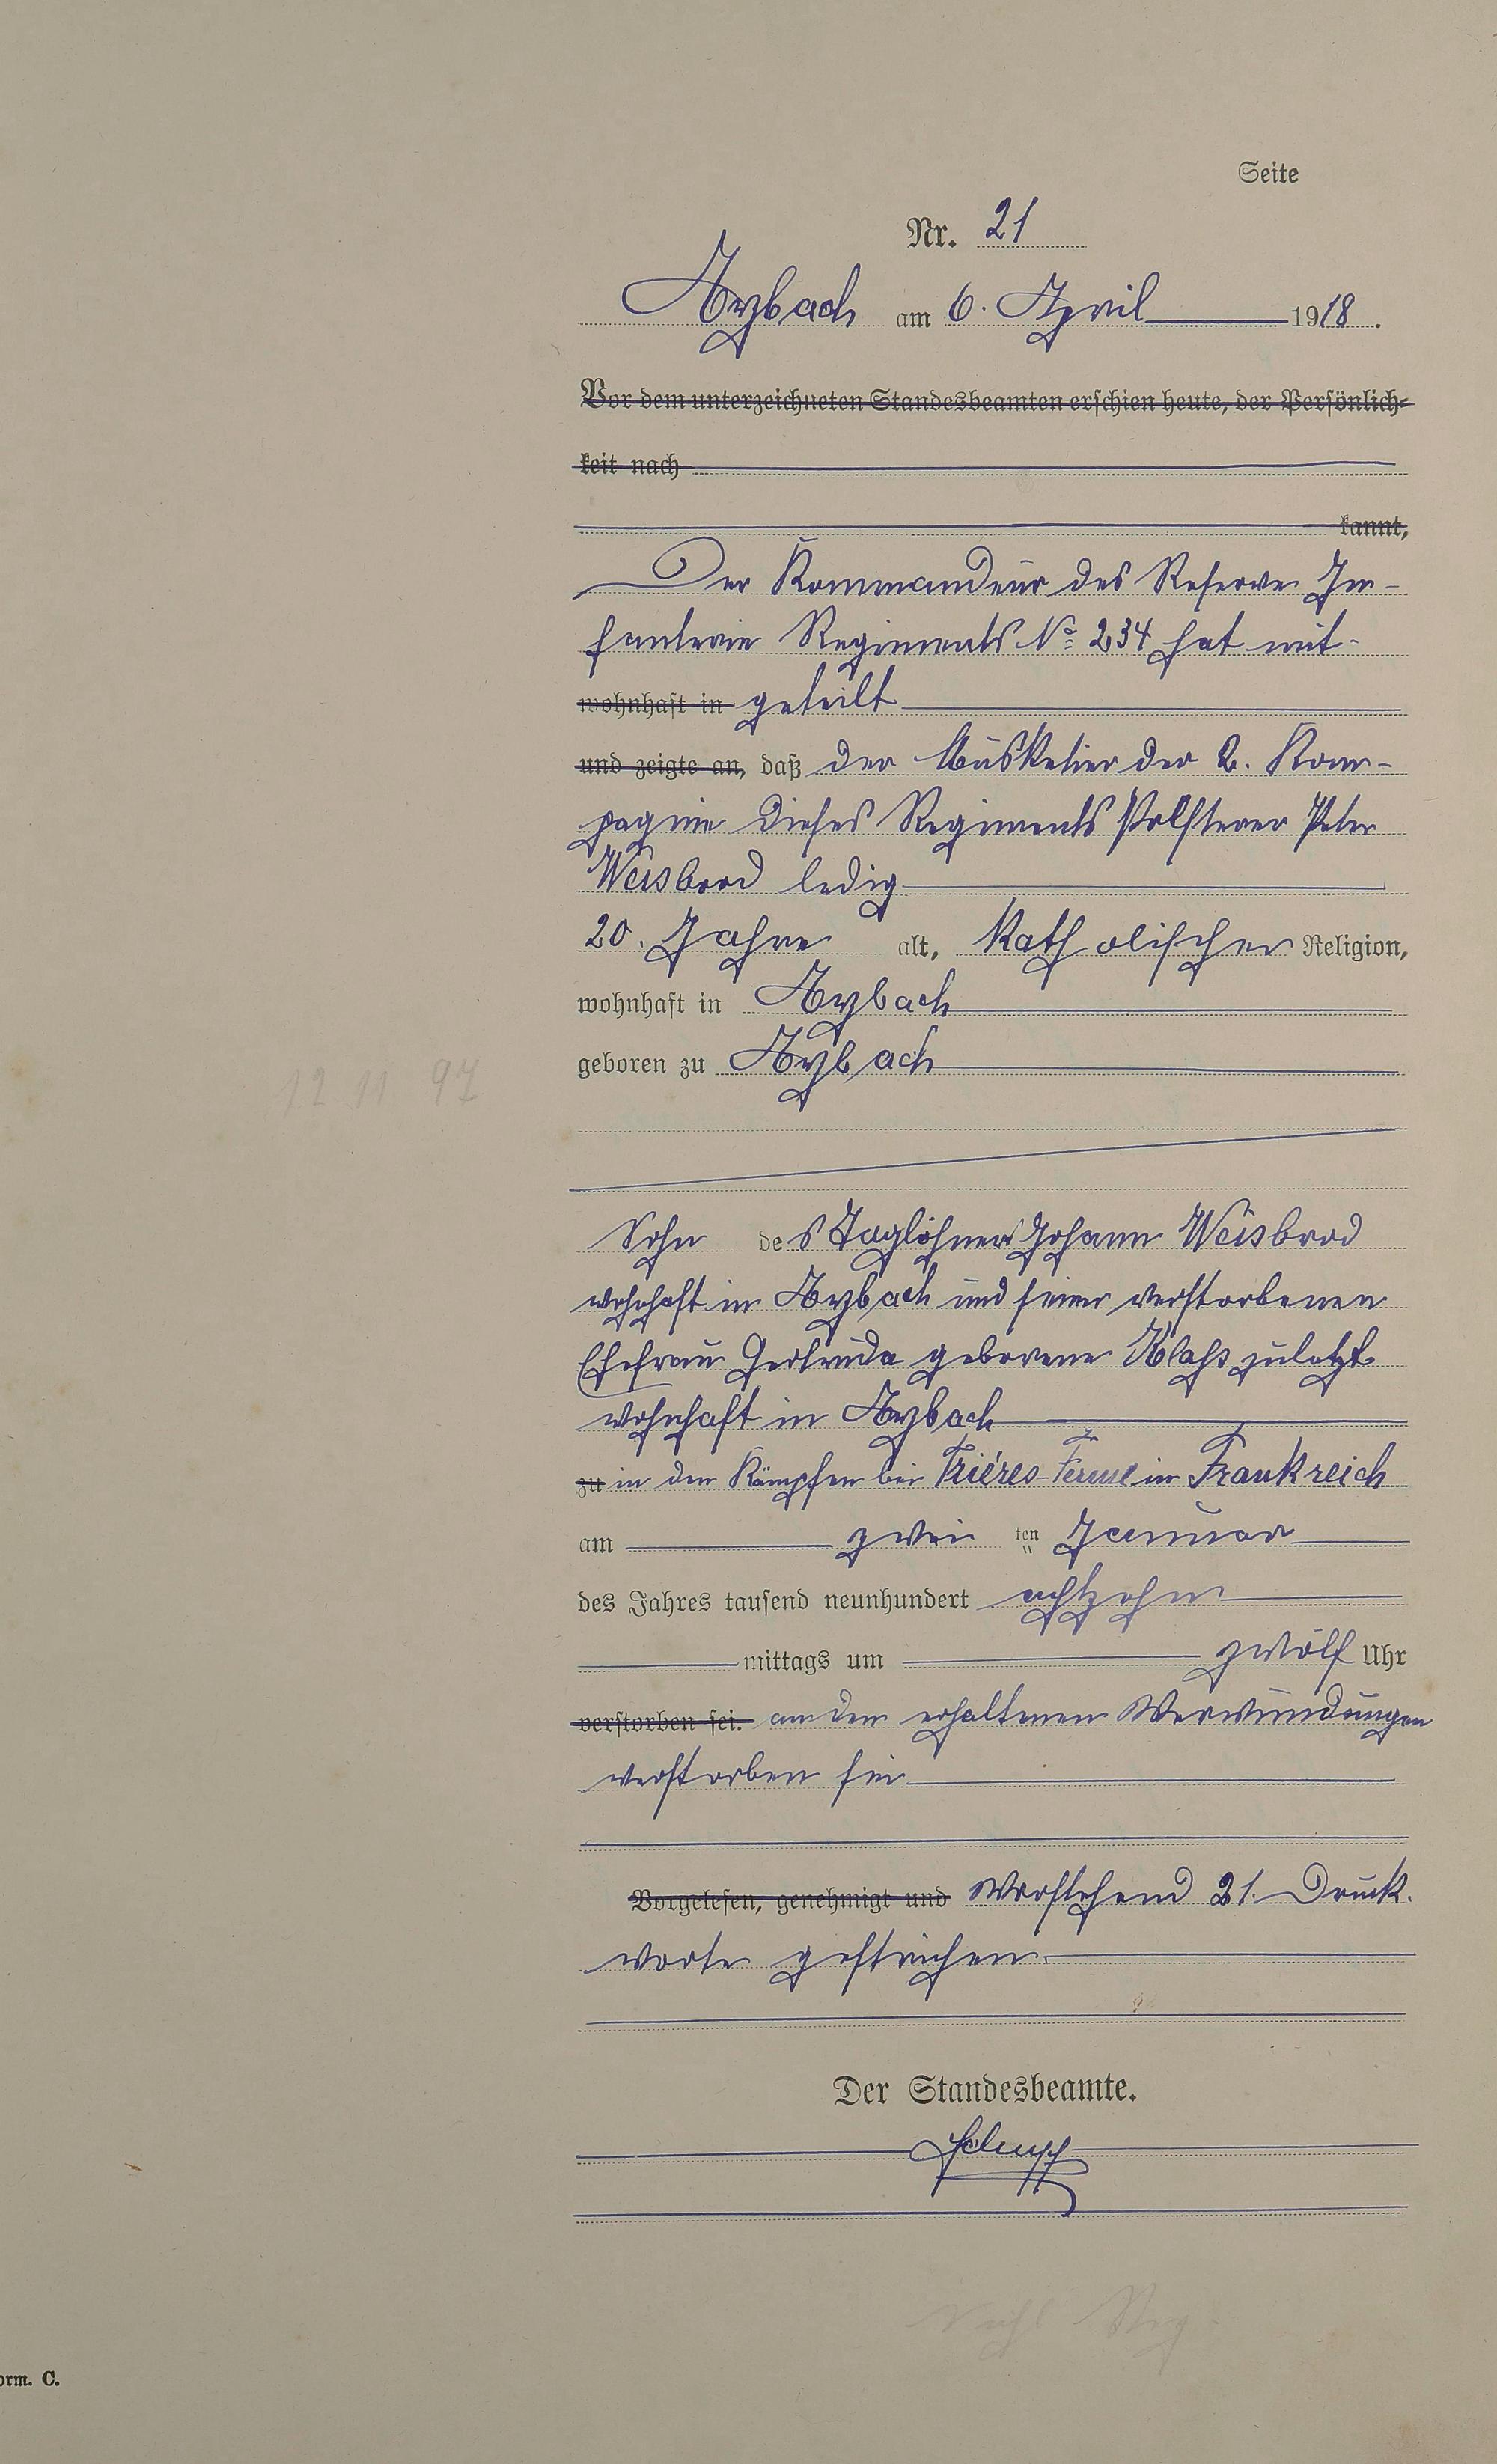 Seite
Nr. 21
Arzbach am 6. April 1918.
Vor dem unterzeichneten Standesbeamten erschien heute, der Persönlich-
keit nach
kannt,
Der Kommandeur des Reserve In-
fanterie Regiments No 234 hat mit-
wohnhaft in geteilt
und zeigte an, daß der Musketier der 2. Kom-
pagnie dieses Regiments Polsterer Peter
Weisbrod ledig
20. Jahre alt, katholischer Religion,
wohnhaft in Arzbach
geboren zu Arzbach
12 11 97
Sohn des Taglöhners Johann Weisbrod
wohnhaft in Arzbach und seiner verstorbenen
Ehefrau Gertruda geborene Klaß zuletzt
wohnhaft in Arzbach
zu in den Kämpfen bei Trières-Ferme in Frankreich
am zwei ten Januar
des Jahres tausend neunhundert achtzehn
mittags um zwölf Uhr
verstorben sei. an den erhaltenen Verwundungen
verstorben sei
Vorgelesen, genehmigt und Vorstehend 21. Druck-
worte gestrichen.
Der Standesbeamte.
orm. C.